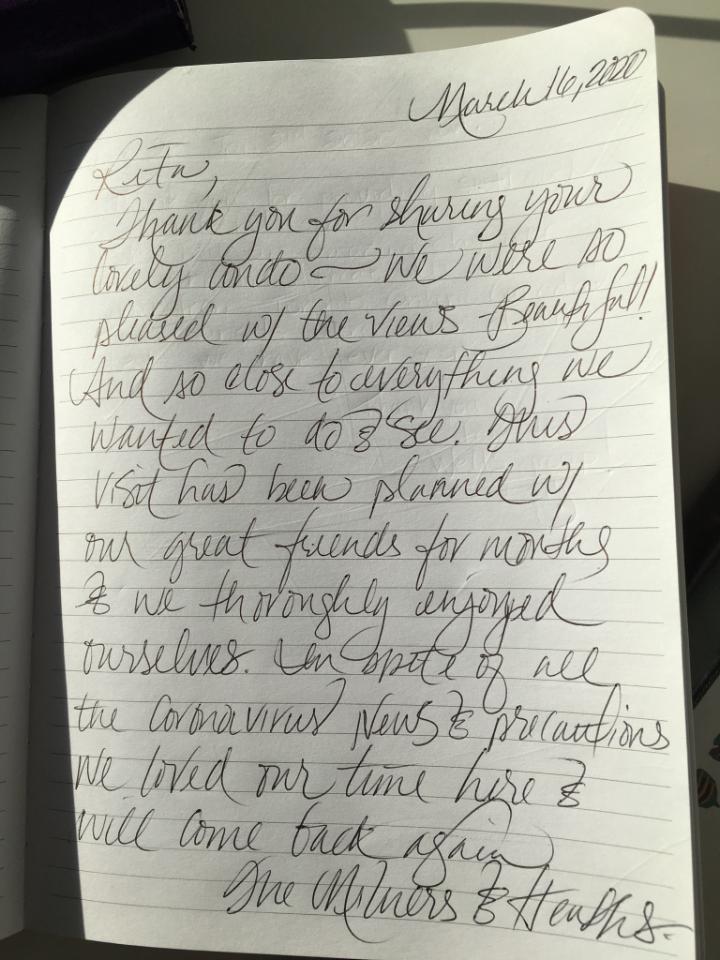 March 16, 2020
Rita,
Thank you for sharing your
lovely condo — We were so
pleased w/ the views - Beautiful!
And so close to everything we
wanted to do & see. This
visit has been planned w/
our great friends for months
& we thoroghly enjoyed
ourselves. In spite of all
the Coronavirus News & precautions
We loved our time here &
will come back again
The Milners &